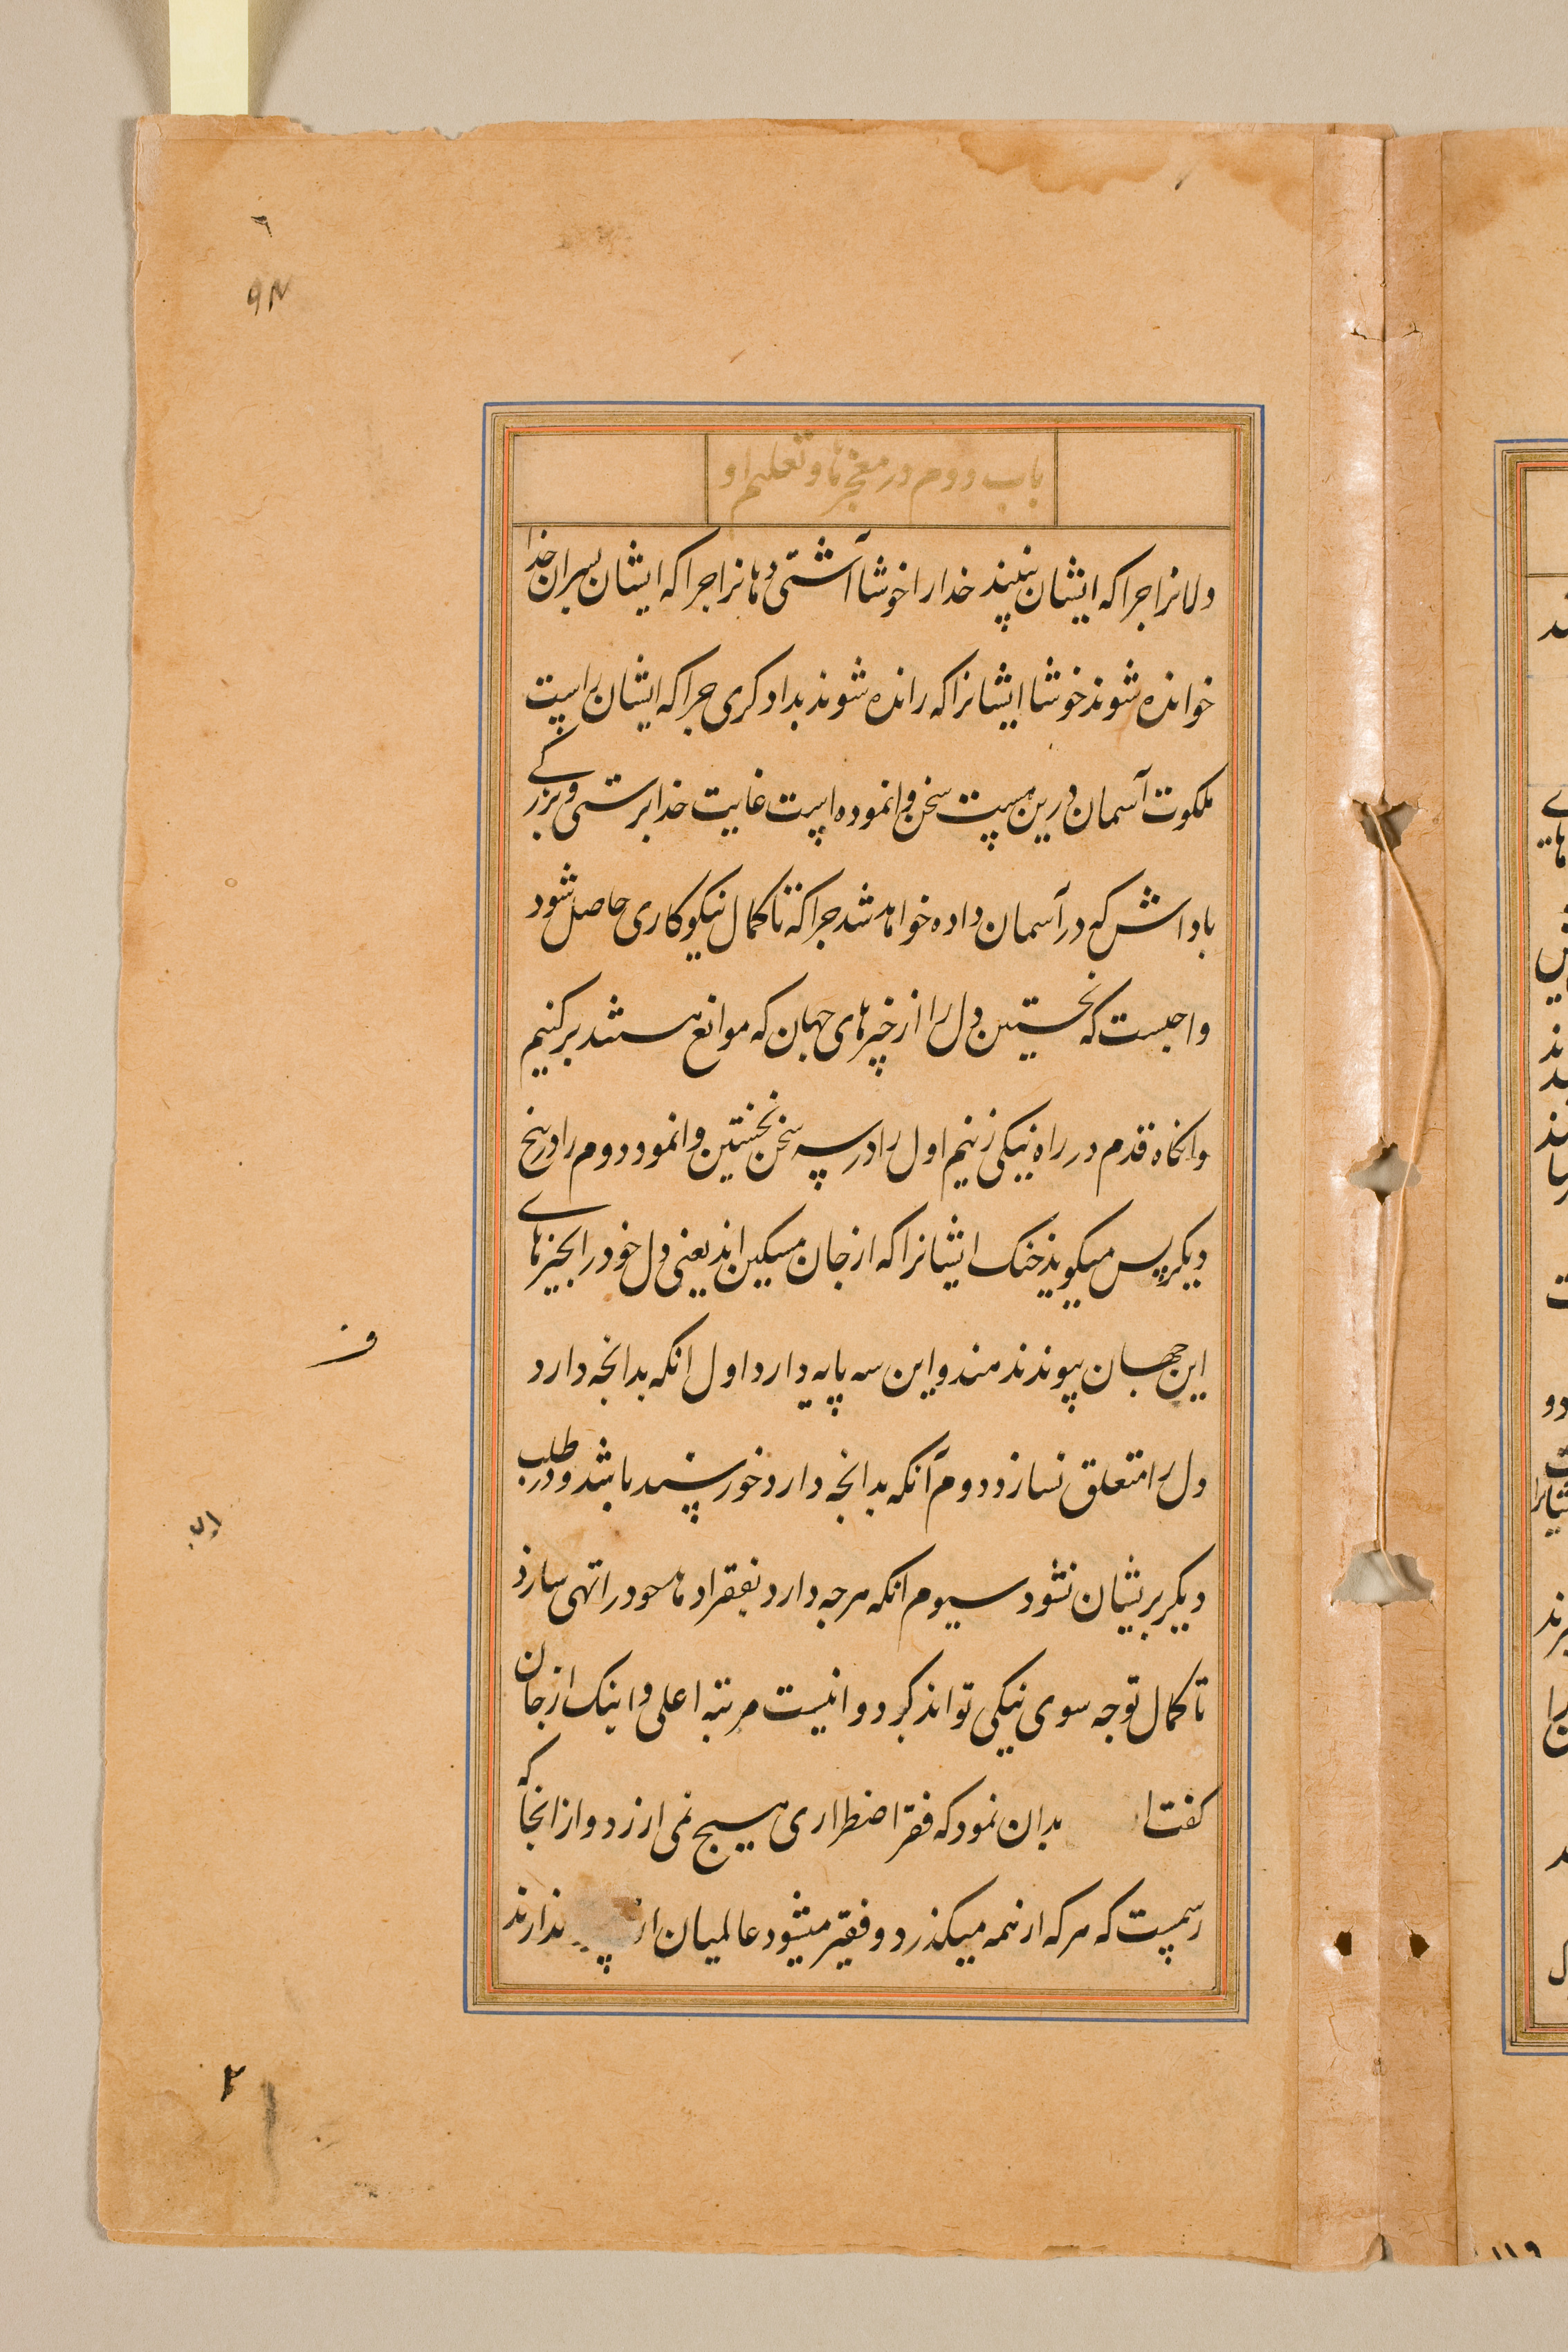 ٦
باب دووم در معجزها و تعلیم او
دلانرا جراکه ایشان بینند خدا را خوشا آشتی دهانرا جراکه ایشان بسران خدا
خوانده شوند خوشا ایشانرا که رانده شوند بدادکری جراکه ایشان راست
ملکوت آسمان درین هست سخن وانموده است غایت خدابرستی و بزرکی
باداش که در آسمان داده خواهد شد جراکه تا کمال نیکوکاری حاصل شود
واجبست که نخستین دل را از خیرهای جهان که موانع هستند برکنیم
وانکاه قدم در راه نیکی زنیم اول را در سه سخن نخستین وانمود دوم را در پنج
دیکر پس میکوید خنک ایشانرا که از جان مسکین اند یعنی دل خود را بجیزهای
این جهان پیوندند مند و این سه پایه دارد اول انکه بدانچه دارد
دل را متعلق نسازد دوم آنکه بدانچه دارد خورسند باشد و در طلب
دیکر بریشان نشود سیوم انکه هرجه دارد بفقرا دهد خود را تهی سازد
تا کمال توجه سوی نیکی تواند کرد و اینست مرتبه اعلی و اینک از جان
کفت بدان نمود که فقر اضطراری هیچ نمی ارزد و از انجا که
رسمیست که هرکه از همه میکذرد و فقیر میشود عالمیان ندارند
٢
١١٩